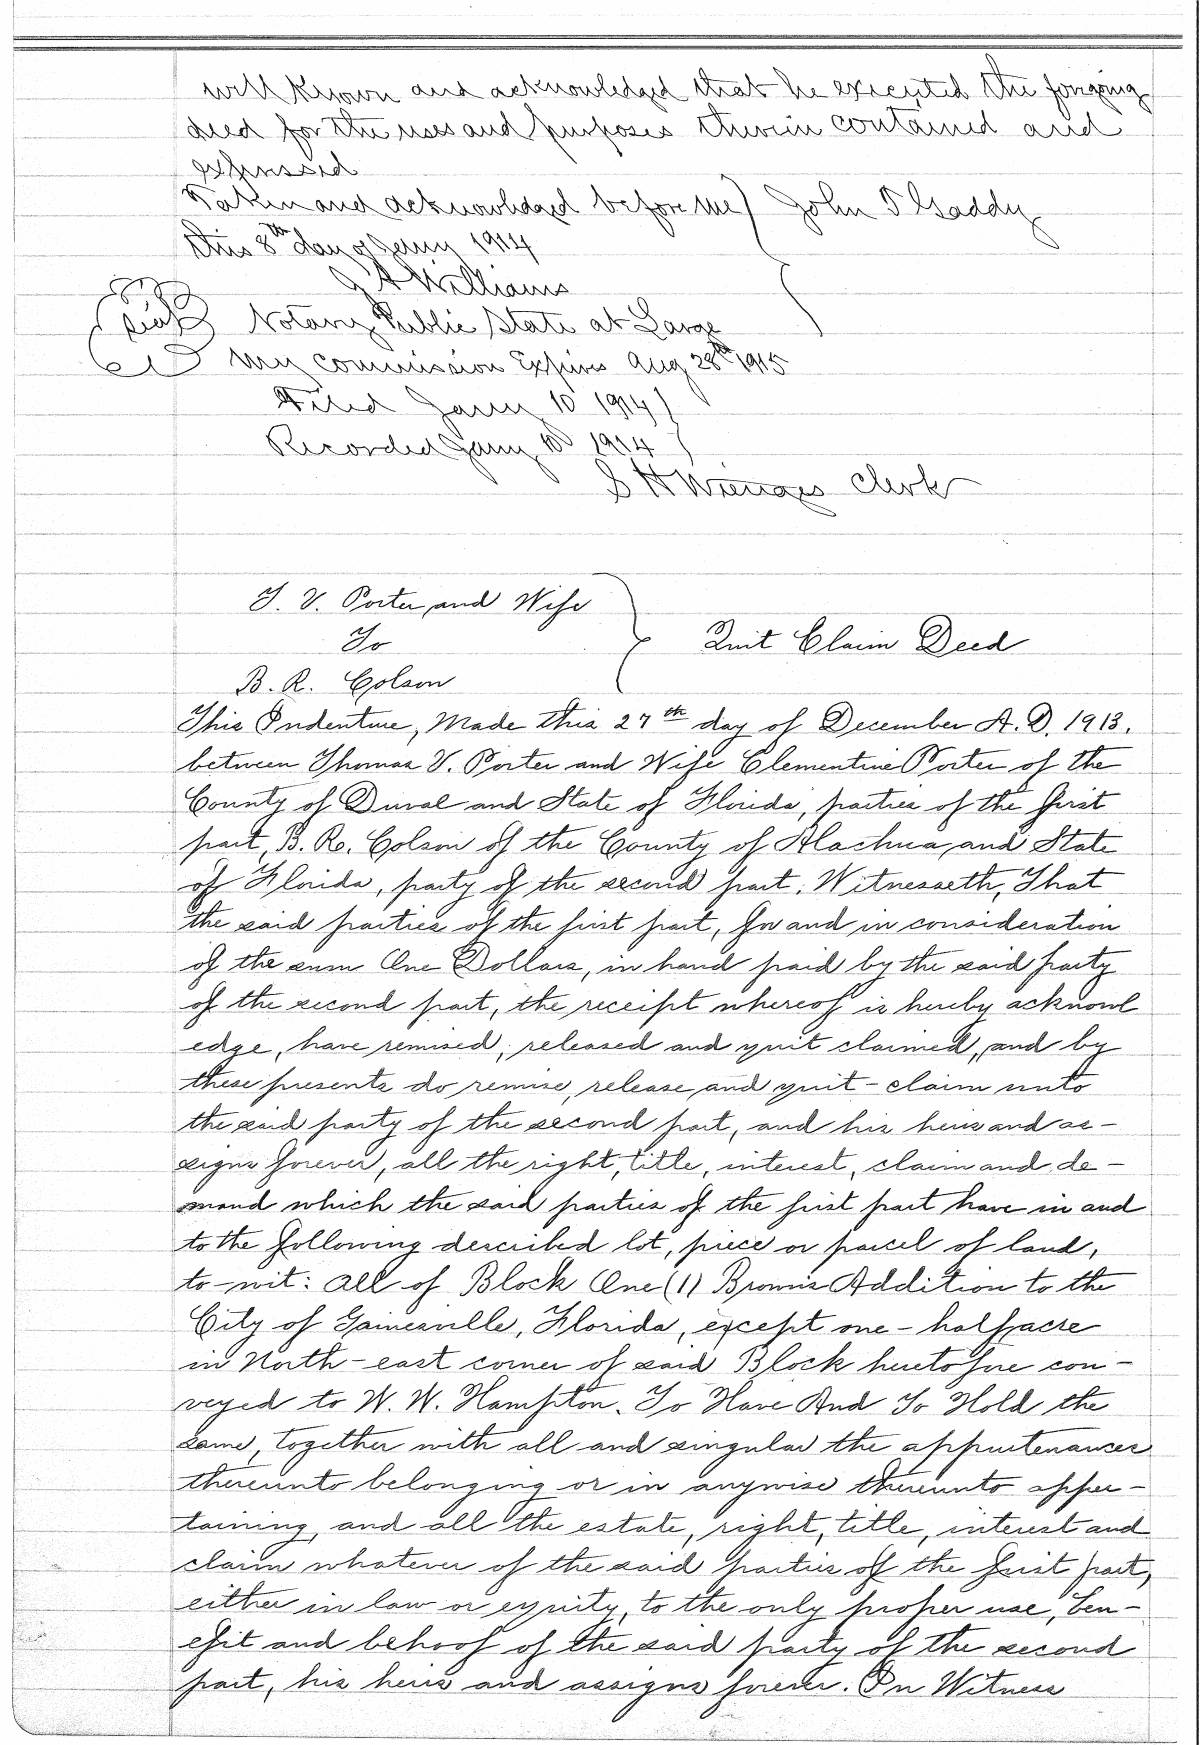 will Known and acknowledged that he executed the forgoing
deed for the uses and purposes therein contained and
expressed
Taken and acknowledged before me) John T Gaddy
this 8th day of Jany 1914
J A Williams
Seal Notary Public State at Large
My commission Expires Aug 28th 1915
Filed Jany 10 1914)
Recorded Jany 10 1914
S H Wienges Clerk
T. V. Porter and Wife
To
Quit Claim Deed
B. R. Colson
This Indenture, Made this 27th day of December A. D. 1913.
between Thomas V. Porter and Wife Clementine Porter of the
County of Duval and State of Florida, parties of the first
part, B. R. Colson of the County of Alachua, and State
of Florida, party of the second part, Witnesseth, That
the said parties of the first part, for and in consideration
of the sum One Dollars, in hand paid by the said party
of the second part, the receipt whereof is hereby acknowl
edge, have remised, released and quit claimed, and by
these presents do remise, release, and quit-claim unto
the said party of the second part, and his heirs and as-
signs forever, all the right, title, interest, claim and de-
mand which the said parties of the first part have in and
to the following described lot, piece or parcel of land,
to-wit: all of Block One (1) Brown's Addition to the
City of Gainesville, Florida, except one-half acre
in North-east corner of said Block heretofore con-
veyed to W. W. Hampton. To Have And To Hold the
same, together with all and singular the appurtenances
thereunto belonging or in anywise thereunto apper-
taining, and all the estate, right, title, interest and
claim whatever of the said parties of the first part,
either in law or equity, to the only proper use, ben-
efit and behoof of the said party of the second
part, his heirs and assigns forever. In Witness